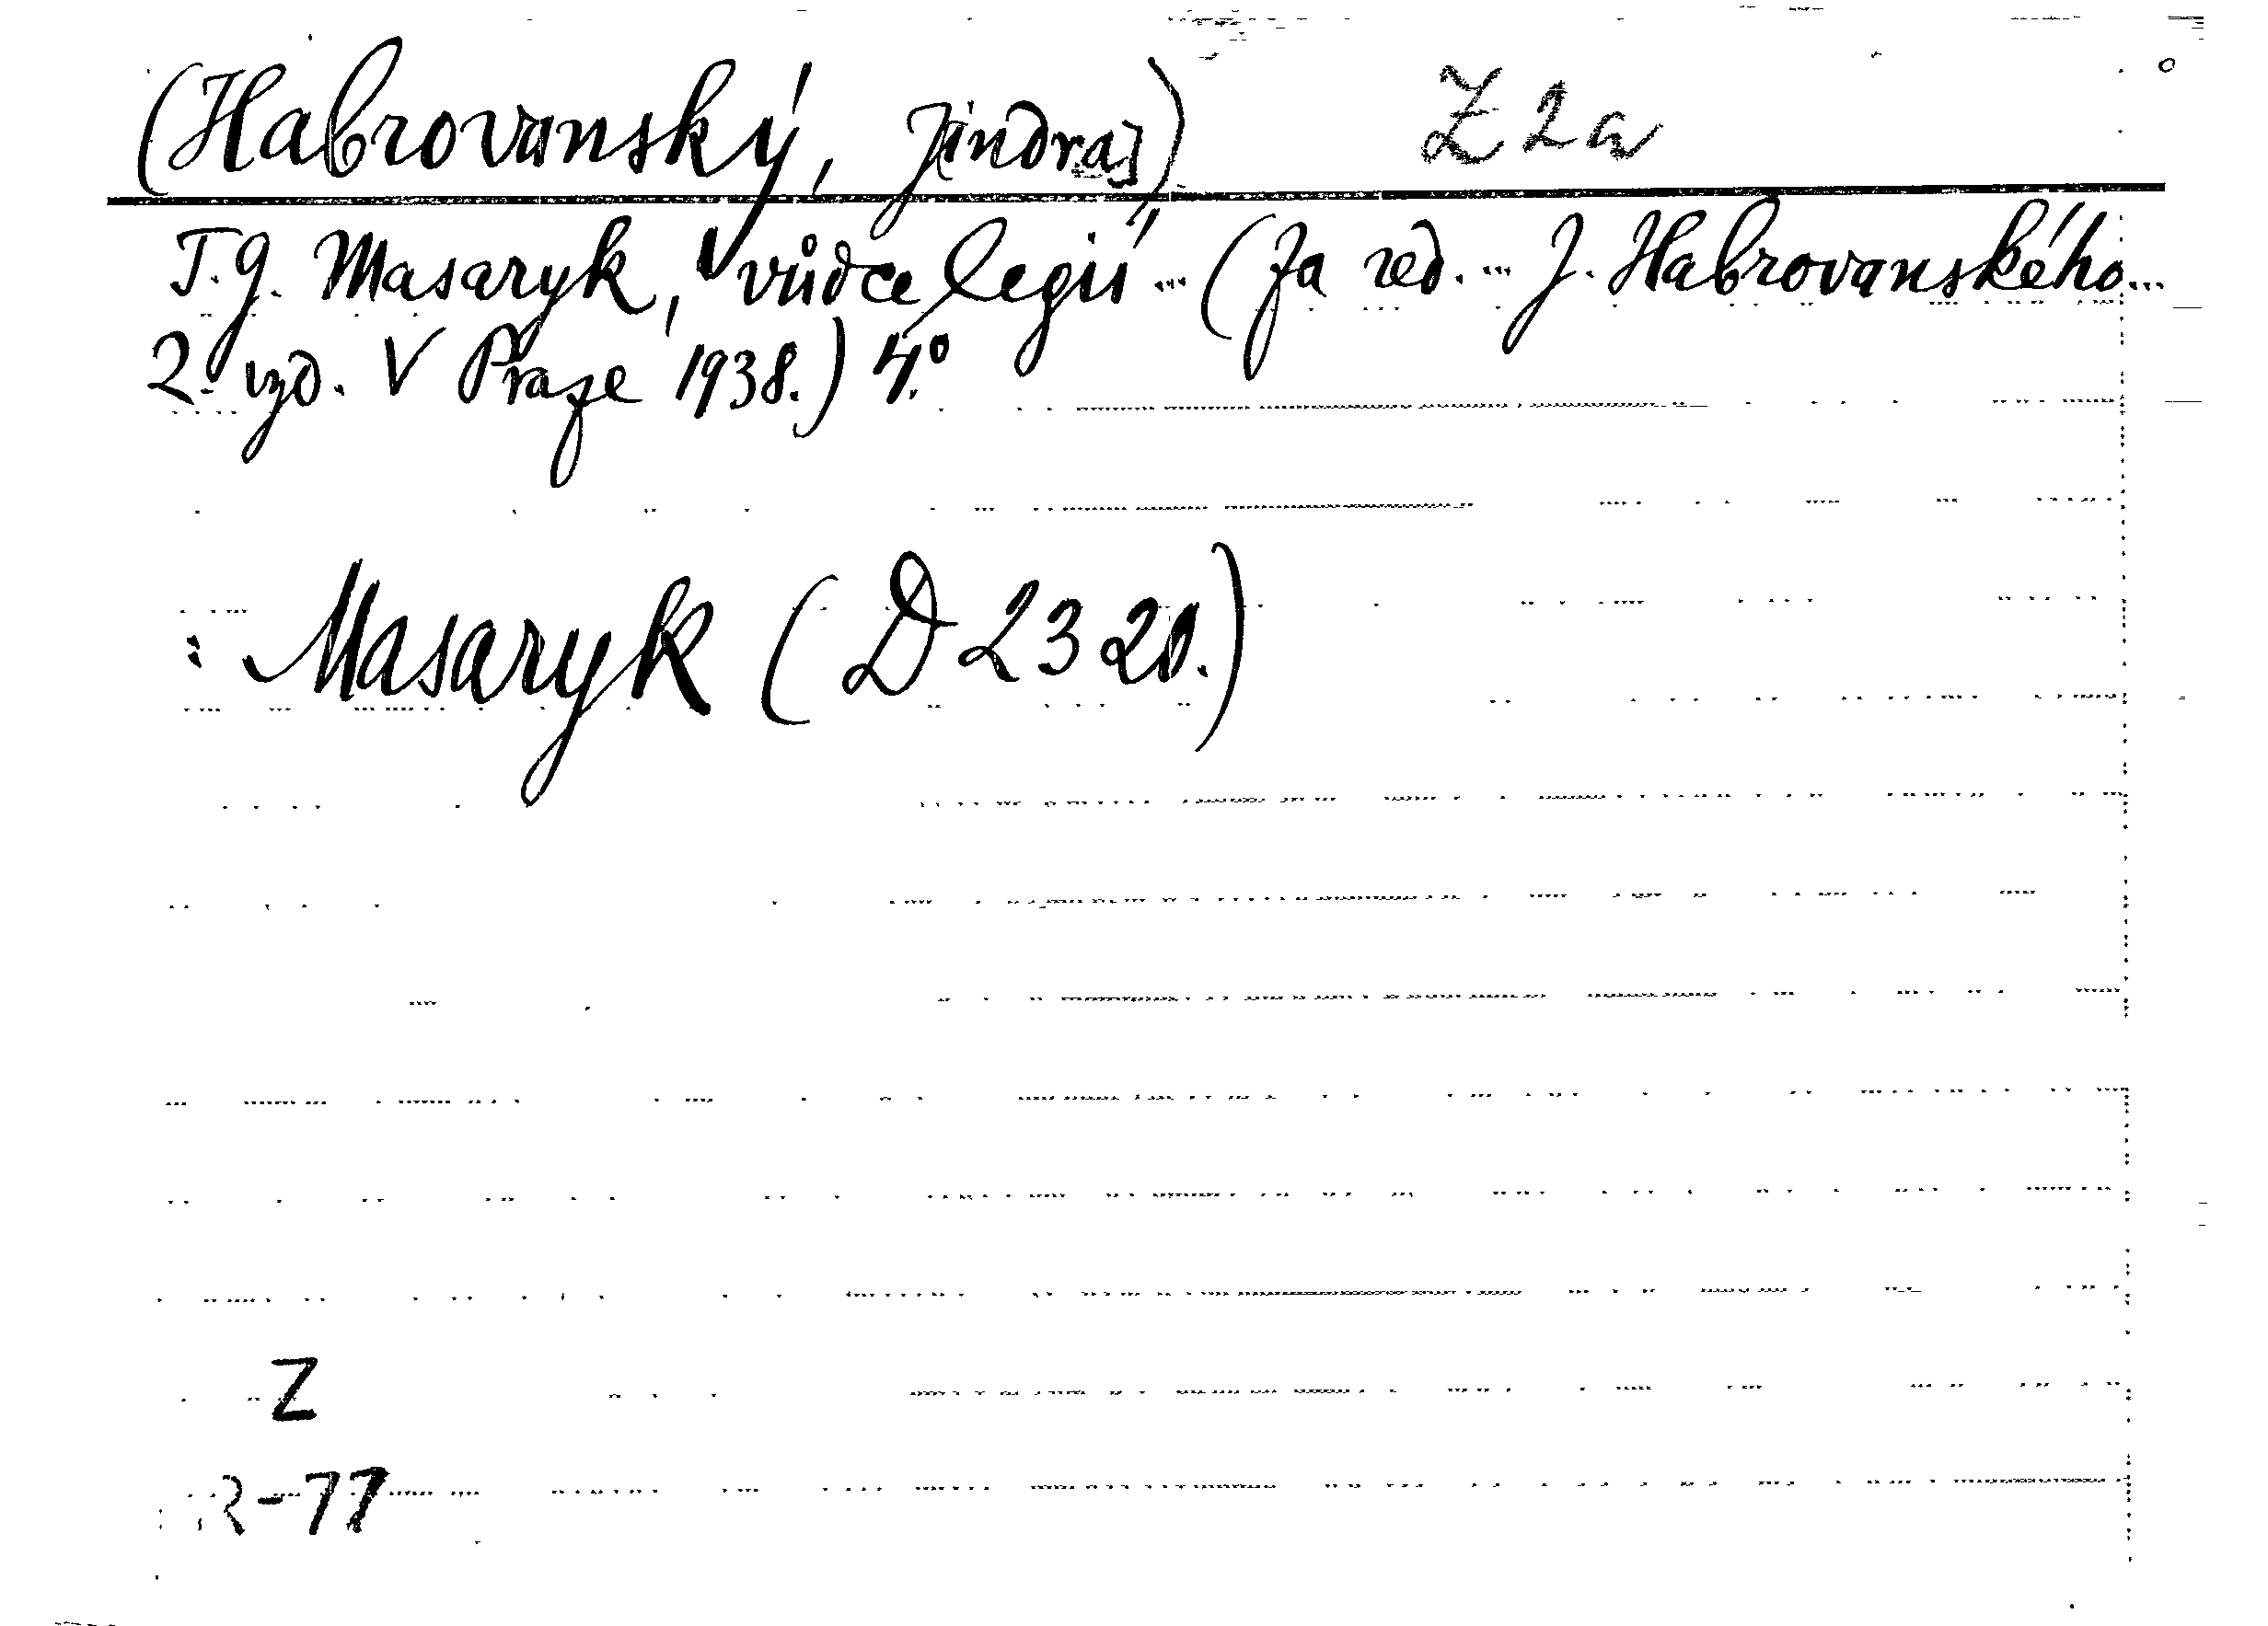 (Habrovanský, Jindra) Z 2a
T. G. Masaryk, vůdce legií ... (Za red. ... J. Habrovanského ...
2. vyd. V Praze 1938.) 4.°
: Masaryk (D 23 20.)
Z
R-77